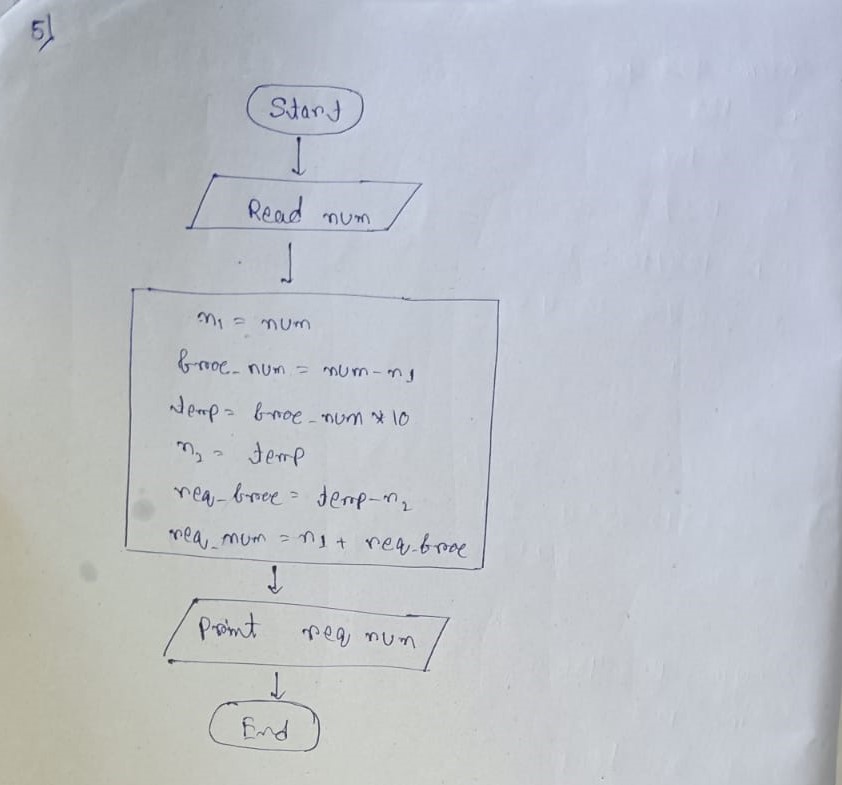 5)
Start
Read num
n1 = num
frac_num = num - n1
temp = frac_num * 10
n2 = temp
req_frac = temp - n2
req_num = n1 + req_frac
Print req num
End